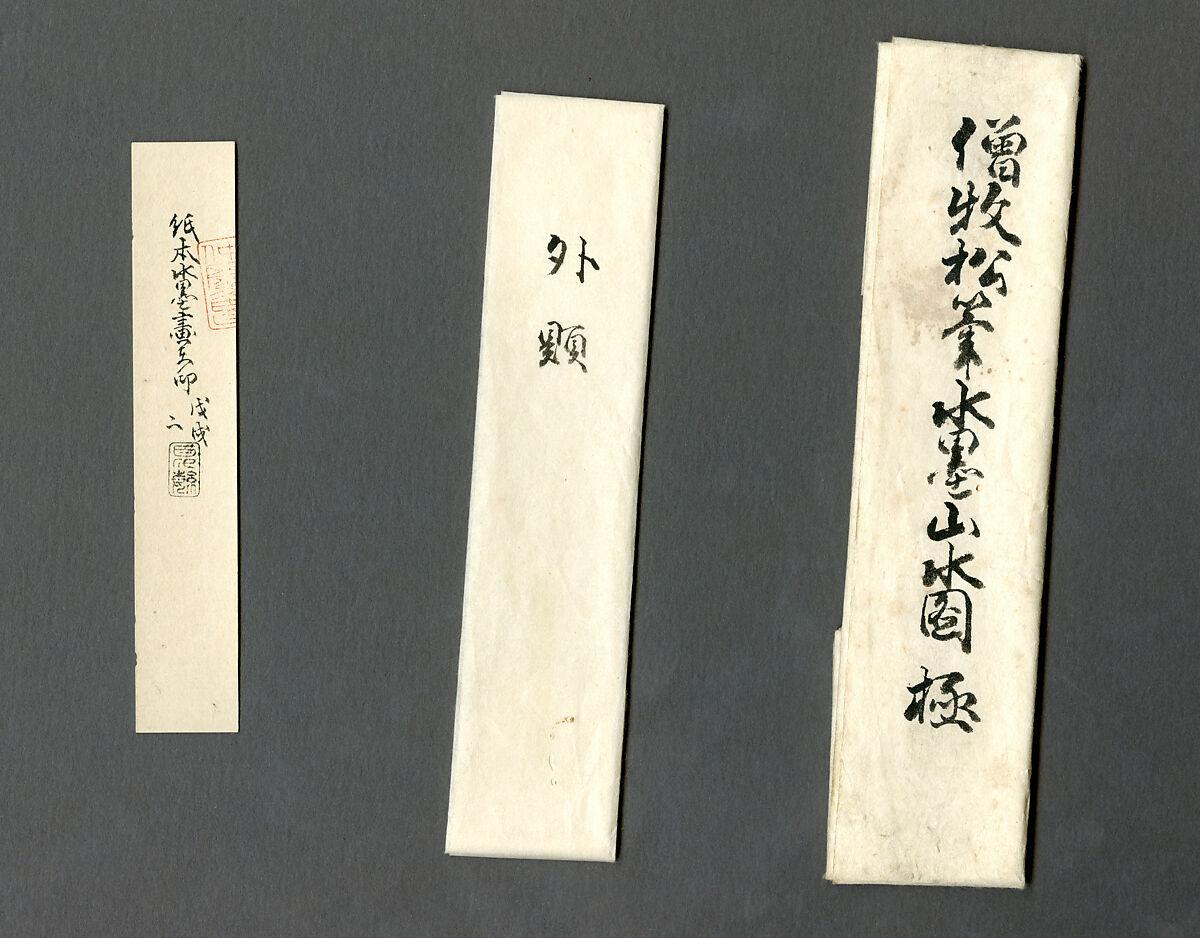 僧牧松筆水墨山水図 極
外題
紙本水墨畫立印
戊戌
二